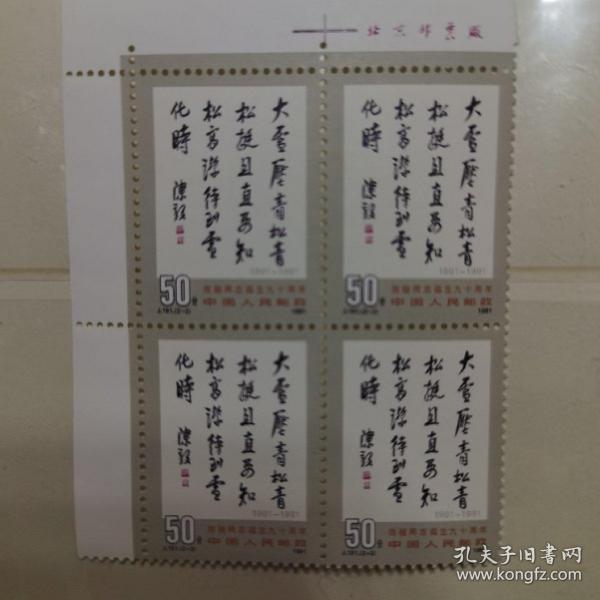 北京邮票厂
大雪壓青松青
松挺且直要知
松高潔待到雪
化時 陳毅
1901-1991
50分
陈毅同志诞生九十周年
中国人民邮政
J.181.(2-2)
1991
大雪壓青松青
松挺且直要知
松高潔待到雪
化時 陳毅
1901-1991
50分
陈毅同志诞生九十周年
中国人民邮政
J.181.(2-2)
1991
大雪壓青松青
松挺且直要知
松高潔待到雪
化時 陳毅
1901-1991
50分
陈毅同志诞生九十周年
中国人民邮政
J.181.(2-2)
1991
大雪壓青松青
松挺且直要知
松高潔待到雪
化時 陳毅
1901-1991
50分
陈毅同志诞生九十周年
中国人民邮政
J.181.(2-2)
1991
孔夫子旧书网
www.kongfz.com